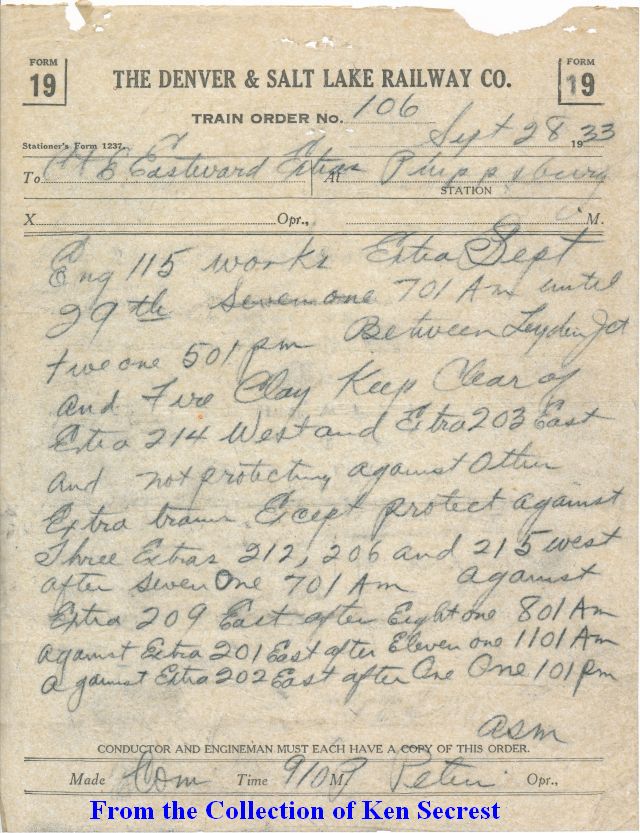 FORM 19
FORM 19
THE DENVER & SALT LAKE RAILWAY CO.
TRAIN ORDER No. 106
Sept 28 1933
Stationer's Form 1237.
To C & E Eastward Extras At Phippsburg
STATION
X Opr., M.
Eng 115 works Extra Sept
29th Seven one 701 Am until
five one 501 pm Between Leyden Jct
and Fire Clay Keep Clear of
Extra 214 West and Extra 203 East
and not protecting against Other
Extra trains Except protect against
Three Extras 212, 206 and 215 west
after seven One 701 Am against
Extra 209 East after Eight one 801 Am
against Extra 201 East after Eleven one 1101 Am
against Extra 202 East after One One 101 pm
CONDUCTOR AND ENGINEMAN MUST EACH HAVE A COPY OF THIS ORDER.
Made Com Time 910 P M. Opr.,
From the Collection of Ken Secrest